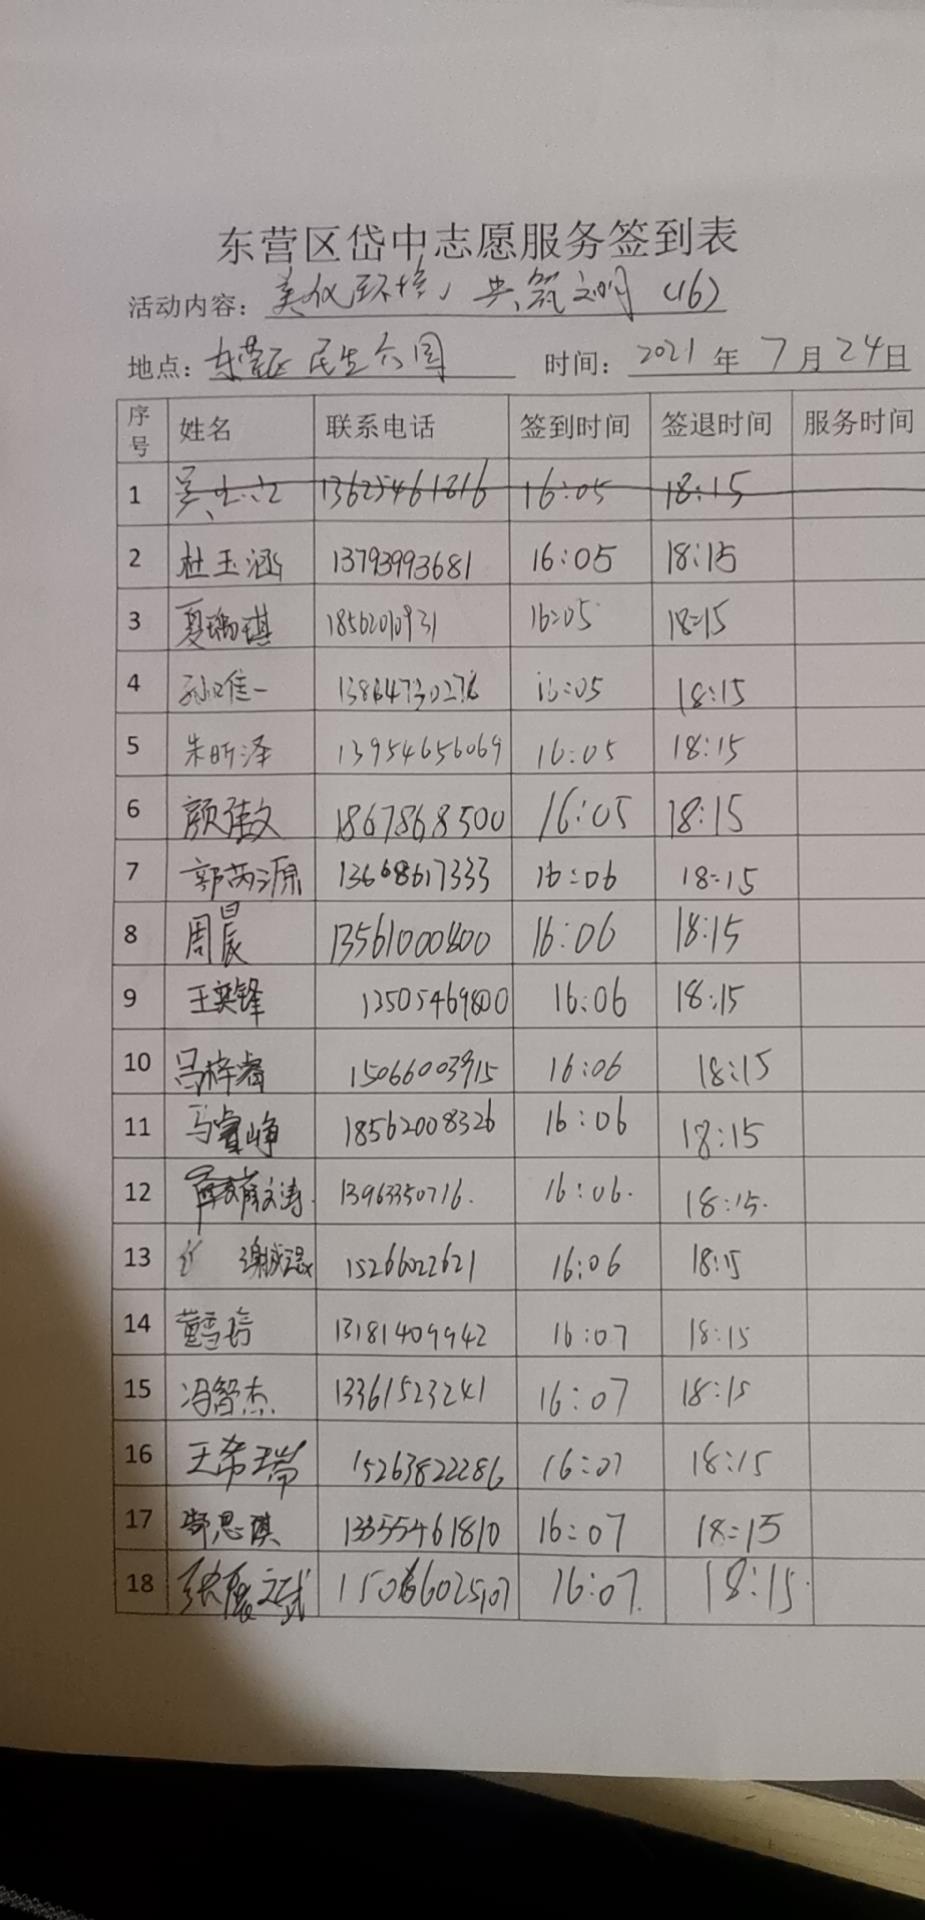 东营区岱中志愿服务签到表
活动内容: 美化环境，共筑文明 (16)
地点: 东营区民生公园 时间: 2021 年 7 月 24 日
序号 姓名 联系电话 签到时间 签退时间 服务时间
1 13625461816 16:05 18:15
2 杜玉涵 13793993681 16:05 18:15
3 夏瑀琪 18562010931 16:05 18:15
4 孙唯一 13864730276 16:05 18:15
5 朱昕泽 13954656069 16:05 18:15
6 颜伟文 1867868500 16:05 18:15
7 郭芮源 13668617333 16:06 18:15
8 周晨 13561000400 16:06 18:15
9 王奕锋 13505469800 16:06 18:15
10 吕梓睿 15066003915 16:06 18:15
11 马睿峥 18562008326 16:06 18:15
12 薛文涛 13963350716. 16:06. 18:15.
13 15266022621 16:06 18:15
14 董雪 13181409942 16:07 18:15
15 冯智杰 13361523241 16:07 18:15
16 王希瑞 15263822286 16:07 18:15
17 思琪 13355461810 16:07 18:15
18 16:07. 18:15.